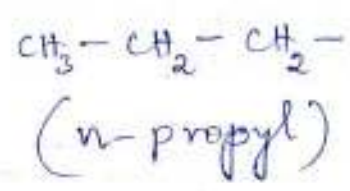 CH₃ - CH₂ - CH₂ -
(n-propyl)